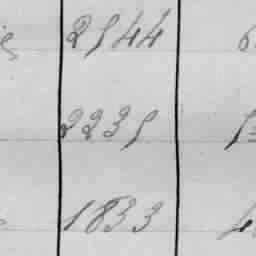 2544
2235
1833